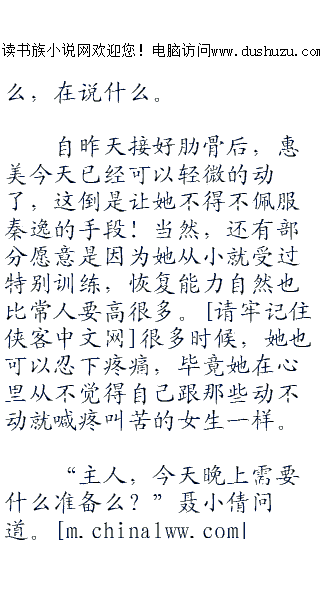 读书族小说网欢迎您！电脑访问www.dushuzu.com
么，在说什么。
自昨天接好肋骨后，惠
美今天已经可以轻微的动
了，这倒是让她不得不佩服
秦逸的手段！当然，还有部
分愿意是因为她从小就受过
特别训练，恢复能力自然也
比常人要高很多。[请牢记住
侠客中文网]很多时候，她也
可以忍下疼痛，毕竟她在心
里从不觉得自己跟那些动不
动就喊疼叫苦的女生一样。
“主人，今天晚上需要
什么准备么？”聂小倩问
道。[m.china1ww.com|